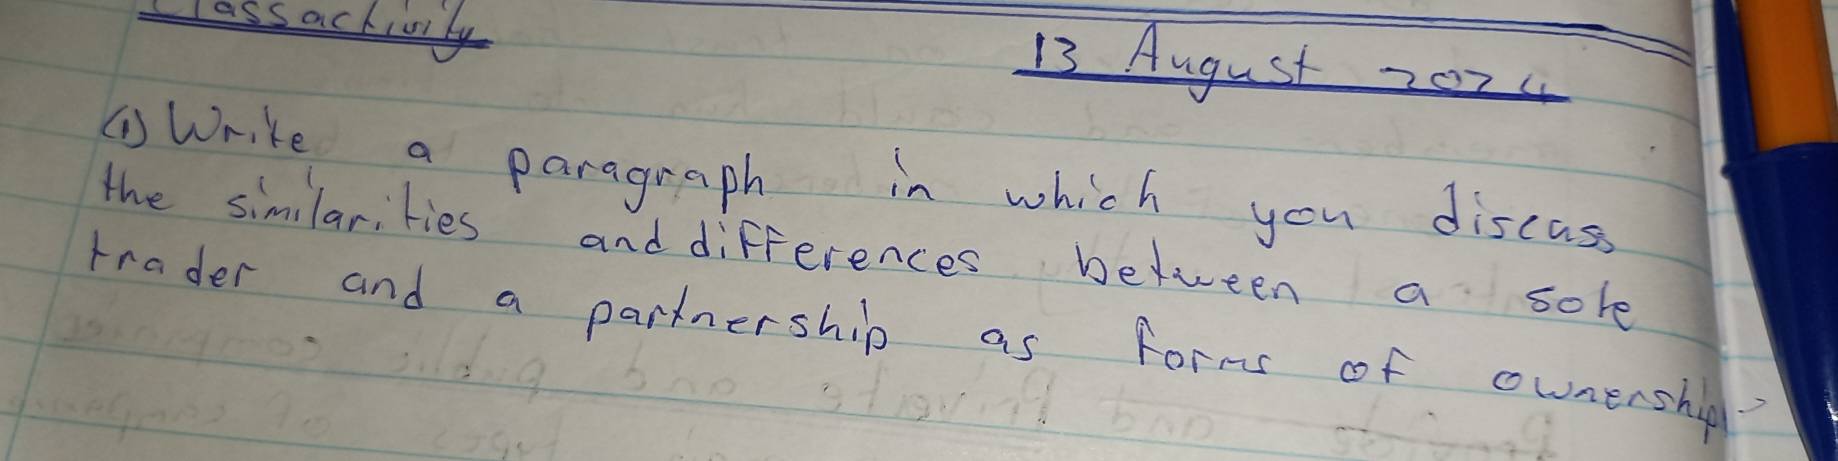 Classactivity
13 August 2024
(1) Write a paragraph in which you discuss
the similarities and differences between a sole
trader and a partnership as forms of ownership